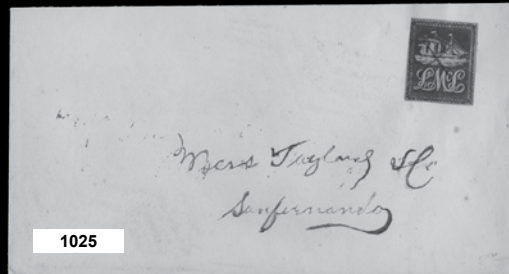 LMcL
Mess Taylor & Co
Sanfernando
1025